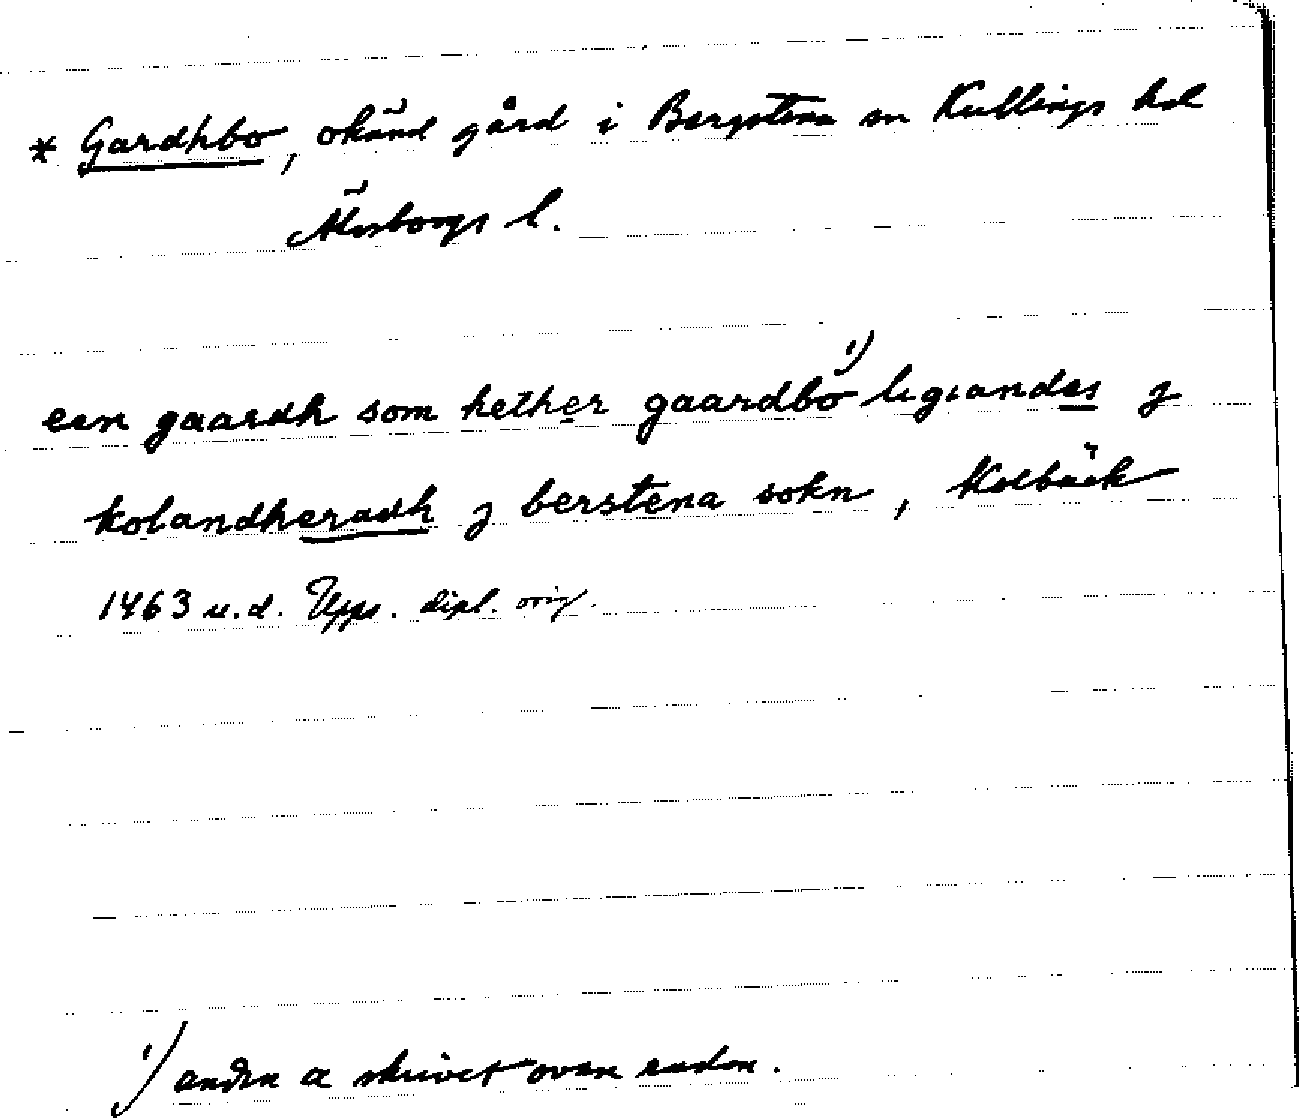 * Gardhbo, okänd gård i Bergstena sn Kullings hd
Älvsborgs l.
een gaardh som hether gaardbo¹⁾ ligiandes j
kolandheradh j berstena sokn, Kolbäck
1463 u.d. Upps. dipl. orig.
¹⁾ andra a skrivet ovan raden.